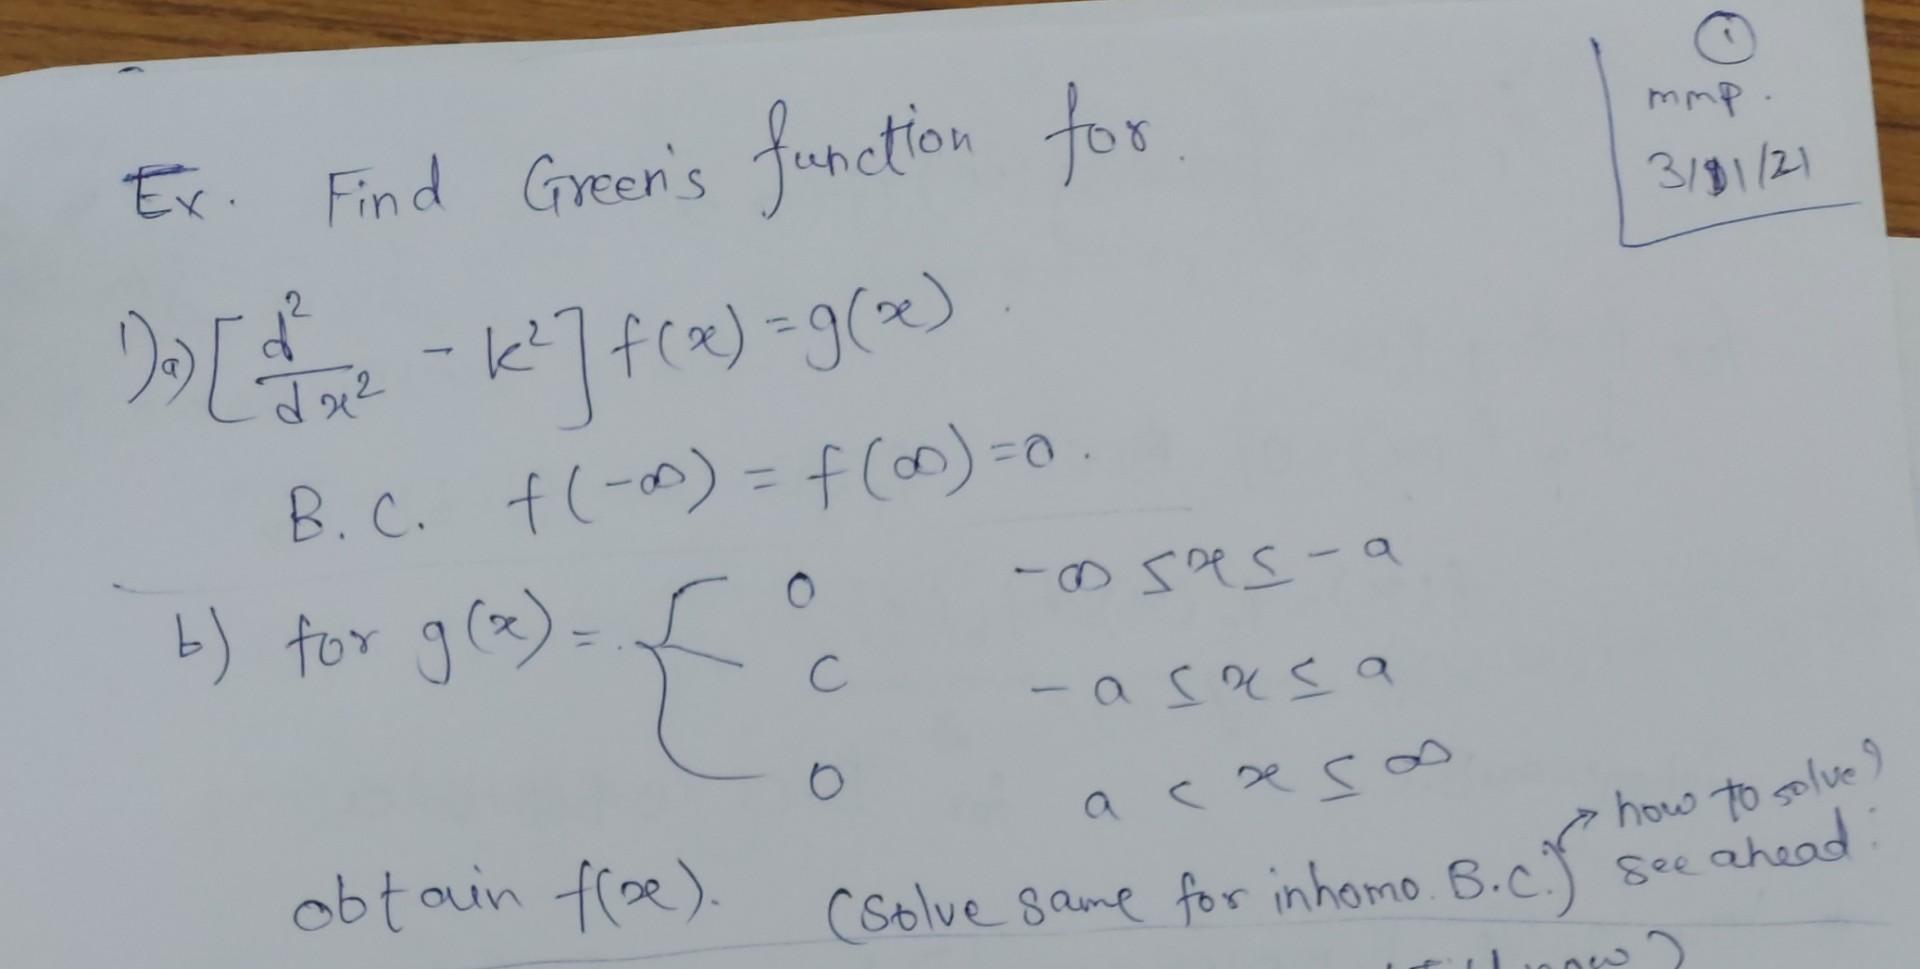 ①
mmp.
3/11/21
Ex. Find Green's function for.
1) a) [d²/dx² - k²] f(x) = g(x).
B. C. f(-∞) = f(∞) = 0.
b) for g(x) = { 0 -∞ ≤ x ≤ -a
c -a ≤ x ≤ a
0 a < x ≤ ∞
obtain f(x). (Solve same for inhomo. B.C.) → how to solve?
see ahead.